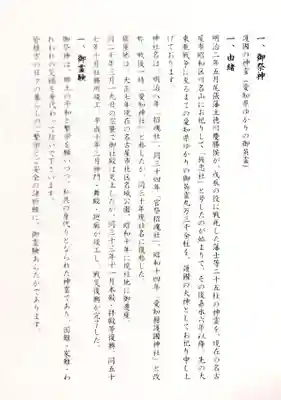 一、御祭神
護國の神霊(愛知県ゆかりの御英霊)
一、由緒
明治二年五月尾張藩主徳川慶勝侯が、戊辰の役に戦死した藩士等二十五柱の神霊を、現在の名古
屋市昭和区川名山にお祀りして、「旌忠社」と号したのが始まりで、その後嘉永六年以降、先の大
東亜戦争に至るまでの愛知県ゆかりの御英霊九万三千余柱を、護國の大神としてお祀り申し上
げております。
神社名は、明治八年「招魂社」、同三十四年「官祭招魂社」、昭和十四年「愛知縣護國神社」と改
称、戦後一時「愛知神社」と称したが、同三十年現社名に復称した。
鎮座地は、大正七年現在の名古屋市北区名城公園、昭和十年に現在地に御遷座。
同二十年三月十九日の空襲で御社殿は炎上したが、同三十三年十一月本殿・拝殿等復興、同五十
七年十月社務所竣工、平成十年三月神門・舞殿・廻廊が竣工し、戦災復興が完了した。
一、御霊験
御祭神は、郷土の平和と繁栄を願いつつ、私共の身代りとなられた神霊であり、国難・家難・わ
れわれの災禍を身代わって防いで下さいます。
皆様方の日々の暮らしのご繁栄とご安全の諸祈願に、御霊験あらたかであります。